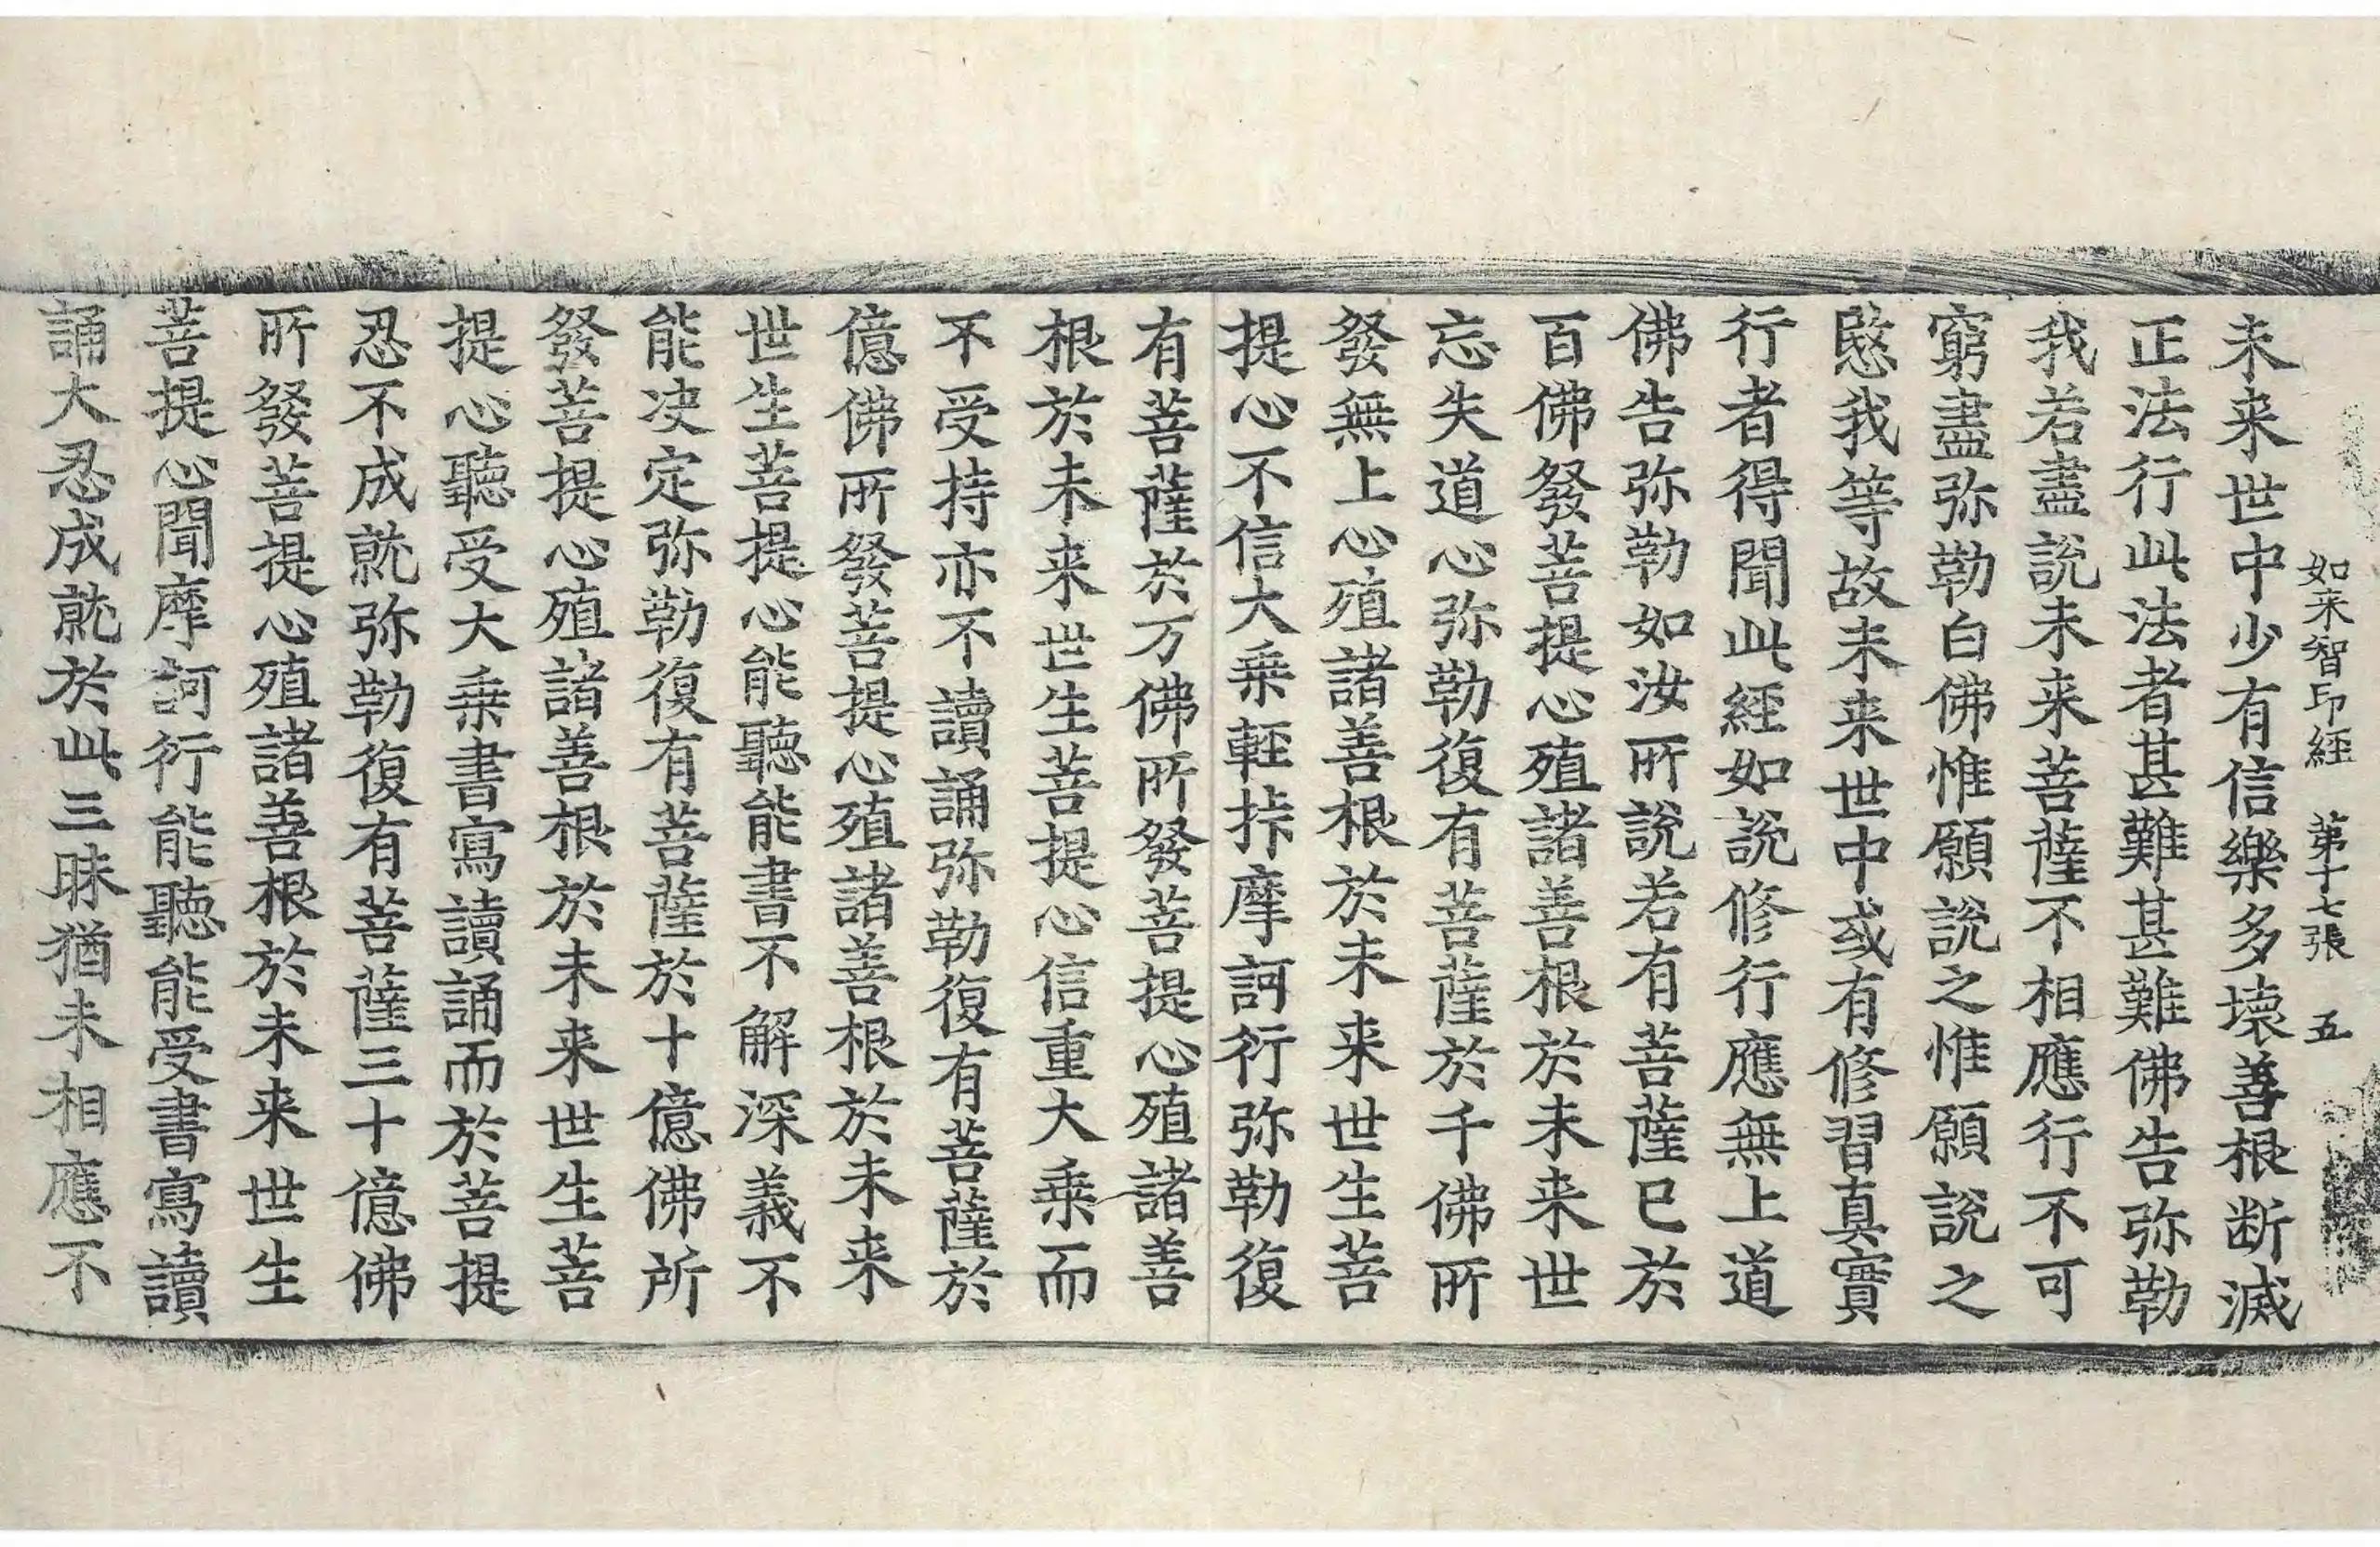 如来智印經 第十七張 五
未来世中少有信樂多壞善根断滅
正法行此法者甚難甚難佛告弥勒
我若盡説未来菩薩不相應行不可
窮盡弥勒白佛惟願説之惟願説之
愍我等故未来世中或有修習真實
行者得聞此經如説修行應無上道
佛告弥勒如汝所説若有菩薩已於
百佛發菩提心殖諸善根於未来世
忘失道心弥勒復有菩薩於千佛所
發無上心殖諸善根於未来世生菩
提心不信大乗輕挊摩訶衍弥勒復
有菩薩於万佛所發菩提心殖諸善
根於未来世生菩提心信重大乗而
不受持亦不讀誦弥勒復有菩薩於
億佛所發菩提心殖諸善根於未来
世生菩提心能聽能書不解深義不
能决定弥勒復有菩薩於十億佛所
發菩提心殖諸善根於未来世生菩
提心聽受大乗書寫讀誦而於菩提
忍不成就弥勒復有菩薩三十億佛
所發菩提心殖諸善根於未来世生
菩提心聞摩訶衍能聽能受書寫讀
誦大忍成就於此三昧猶未相應不